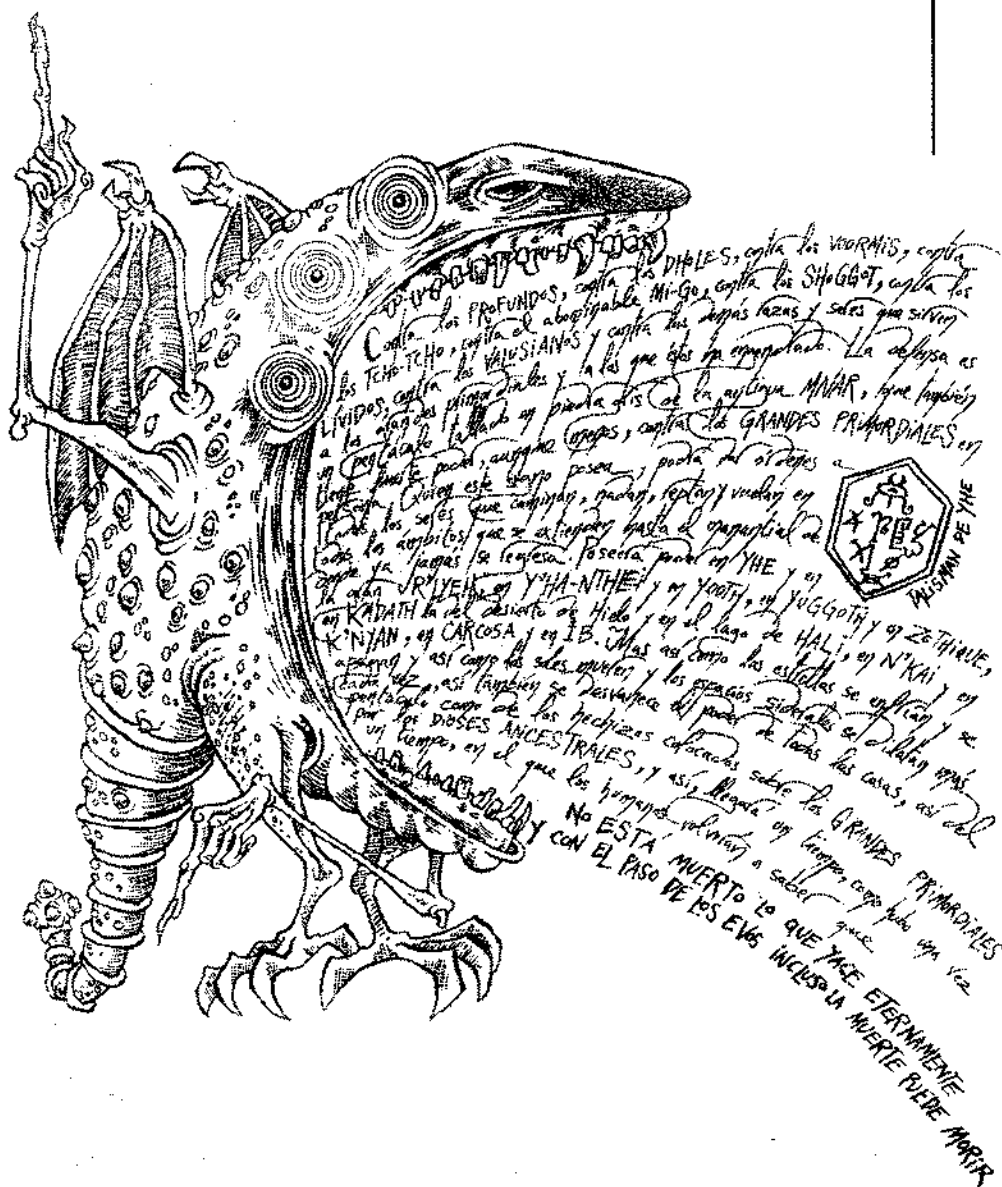 Contra los PROFUNDOS, contra los DHOLES, contra los VOORMIS, contra
los TCHO-TCHO, contra el abominable Mi-Go, contra los SHOGGOT, contra los
LÍVIDOS, contra los VALUSIANOS y contra las demás razas y seres que sirven
a los alados primordiales y a las que éstos han engendrado. La defensa es
un pentáculo tallado en piedra gris de la antigua MNAR, que también
tiene fuerte poder, aunque menos, contra los GRANDES PRIMORDIALES en
persona. Quien este signo posea, podrá dar órdenes a
todos los seres que caminan, nadan, reptan y vuelan en
todos los ámbitos que se extienden hasta el manantial de
donde ya jamás se regresa. Poseerá poder en YHE y en
la gran R'LYEH, en Y'HA-NTHLEI y en YOOTH, en YUGGOTH y en ZOTHIQUE,
en KADATH la del desierto de Hielo y en el lago de HALI, en N'KAI y en
K'NYAN, en CARCOSA y en IB. Mas así como las estrellas se enfrían y se
apagan y así como los soles mueren y los espacios siderales se dilatan más
cada vez, así también se desvanece el poder de todas las cosas, así del
pentáculo como de los hechizos colocados sobre los GRANDES PRIMORDIALES
por los DIOSES ANCESTRALES, y así, llegará un tiempo, como hubo una vez
un tiempo, en el que los humanos volverán a saber que
NO ESTÁ MUERTO LO QUE YACE ETERNAMENTE
Y CON EL PASO DE LOS EVOS INCLUSO LA MUERTE PUEDE MORIR
TALISMAN DE YHE